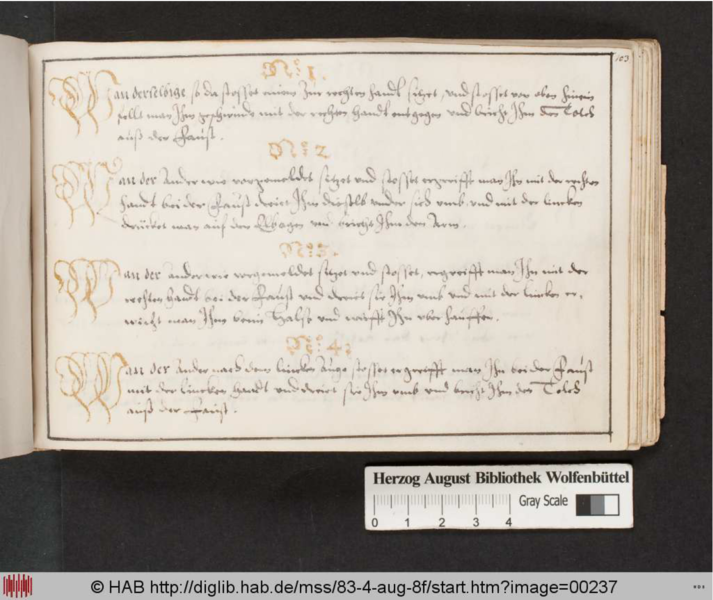 103
No. 1.
Wan derselbige so da stosset einen zur rechten handt sitzet, und stosset von oben hinein
fellt man Ihm geschwinde mit der rechten handt entgegen und bricht Ihm den Tolch
auß der Faust.
No. 2
Wan der Ander wie vorgemeldet sitzet und stosset ergreifft man Ihn mit der rechten
handt bei der Faust dreiet Ihm dieselb under sich umb und mit der lincken
drücket man auf den Elbogen und bricht Ihm den Arm.
No. 3.
Wan der ander wie vorgemeldet sitzet und stosset, ergreifft man Ihn mit der
rechten handt bei der Faust und dreiet sie Ihm umb und mit der lincken er,
wischt man Ihme beim Halß und wirfft Ihn uber hauffen.
No. 4:
Wan der Ander nach dem lincken Auge stosset ergreifft man Ihn bei der Faust
mit der lincken handt und dreiet sie Ihm umb und bricht Ihm den Tolch
auß der Faust.
Herzog August Bibliothek Wolfenbüttel
Gray Scale
0 1 2 3 4
© HAB http://diglib.hab.de/mss/83-4-aug-8f/start.htm?image=00237